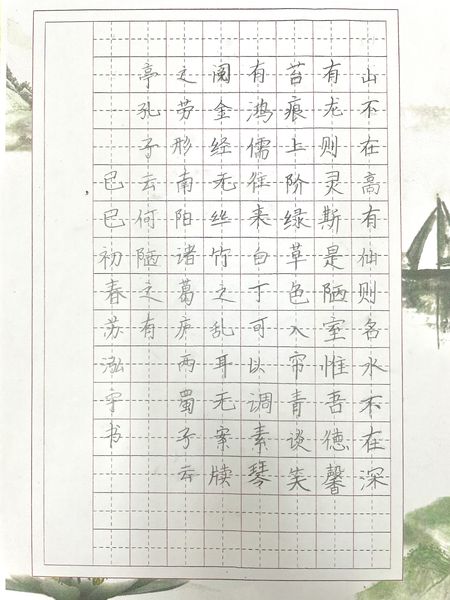 山不在高有仙则名水不在深
有龙则灵斯是陋室惟吾德馨
苔痕上阶绿草色入帘青谈笑
有鸿儒往来白丁可以调素琴
阅金经无丝竹之乱耳无案牍
之劳形南阳诸葛庐西蜀子云
亭孔子云何陋之有
巳巳初春苏泓宇书